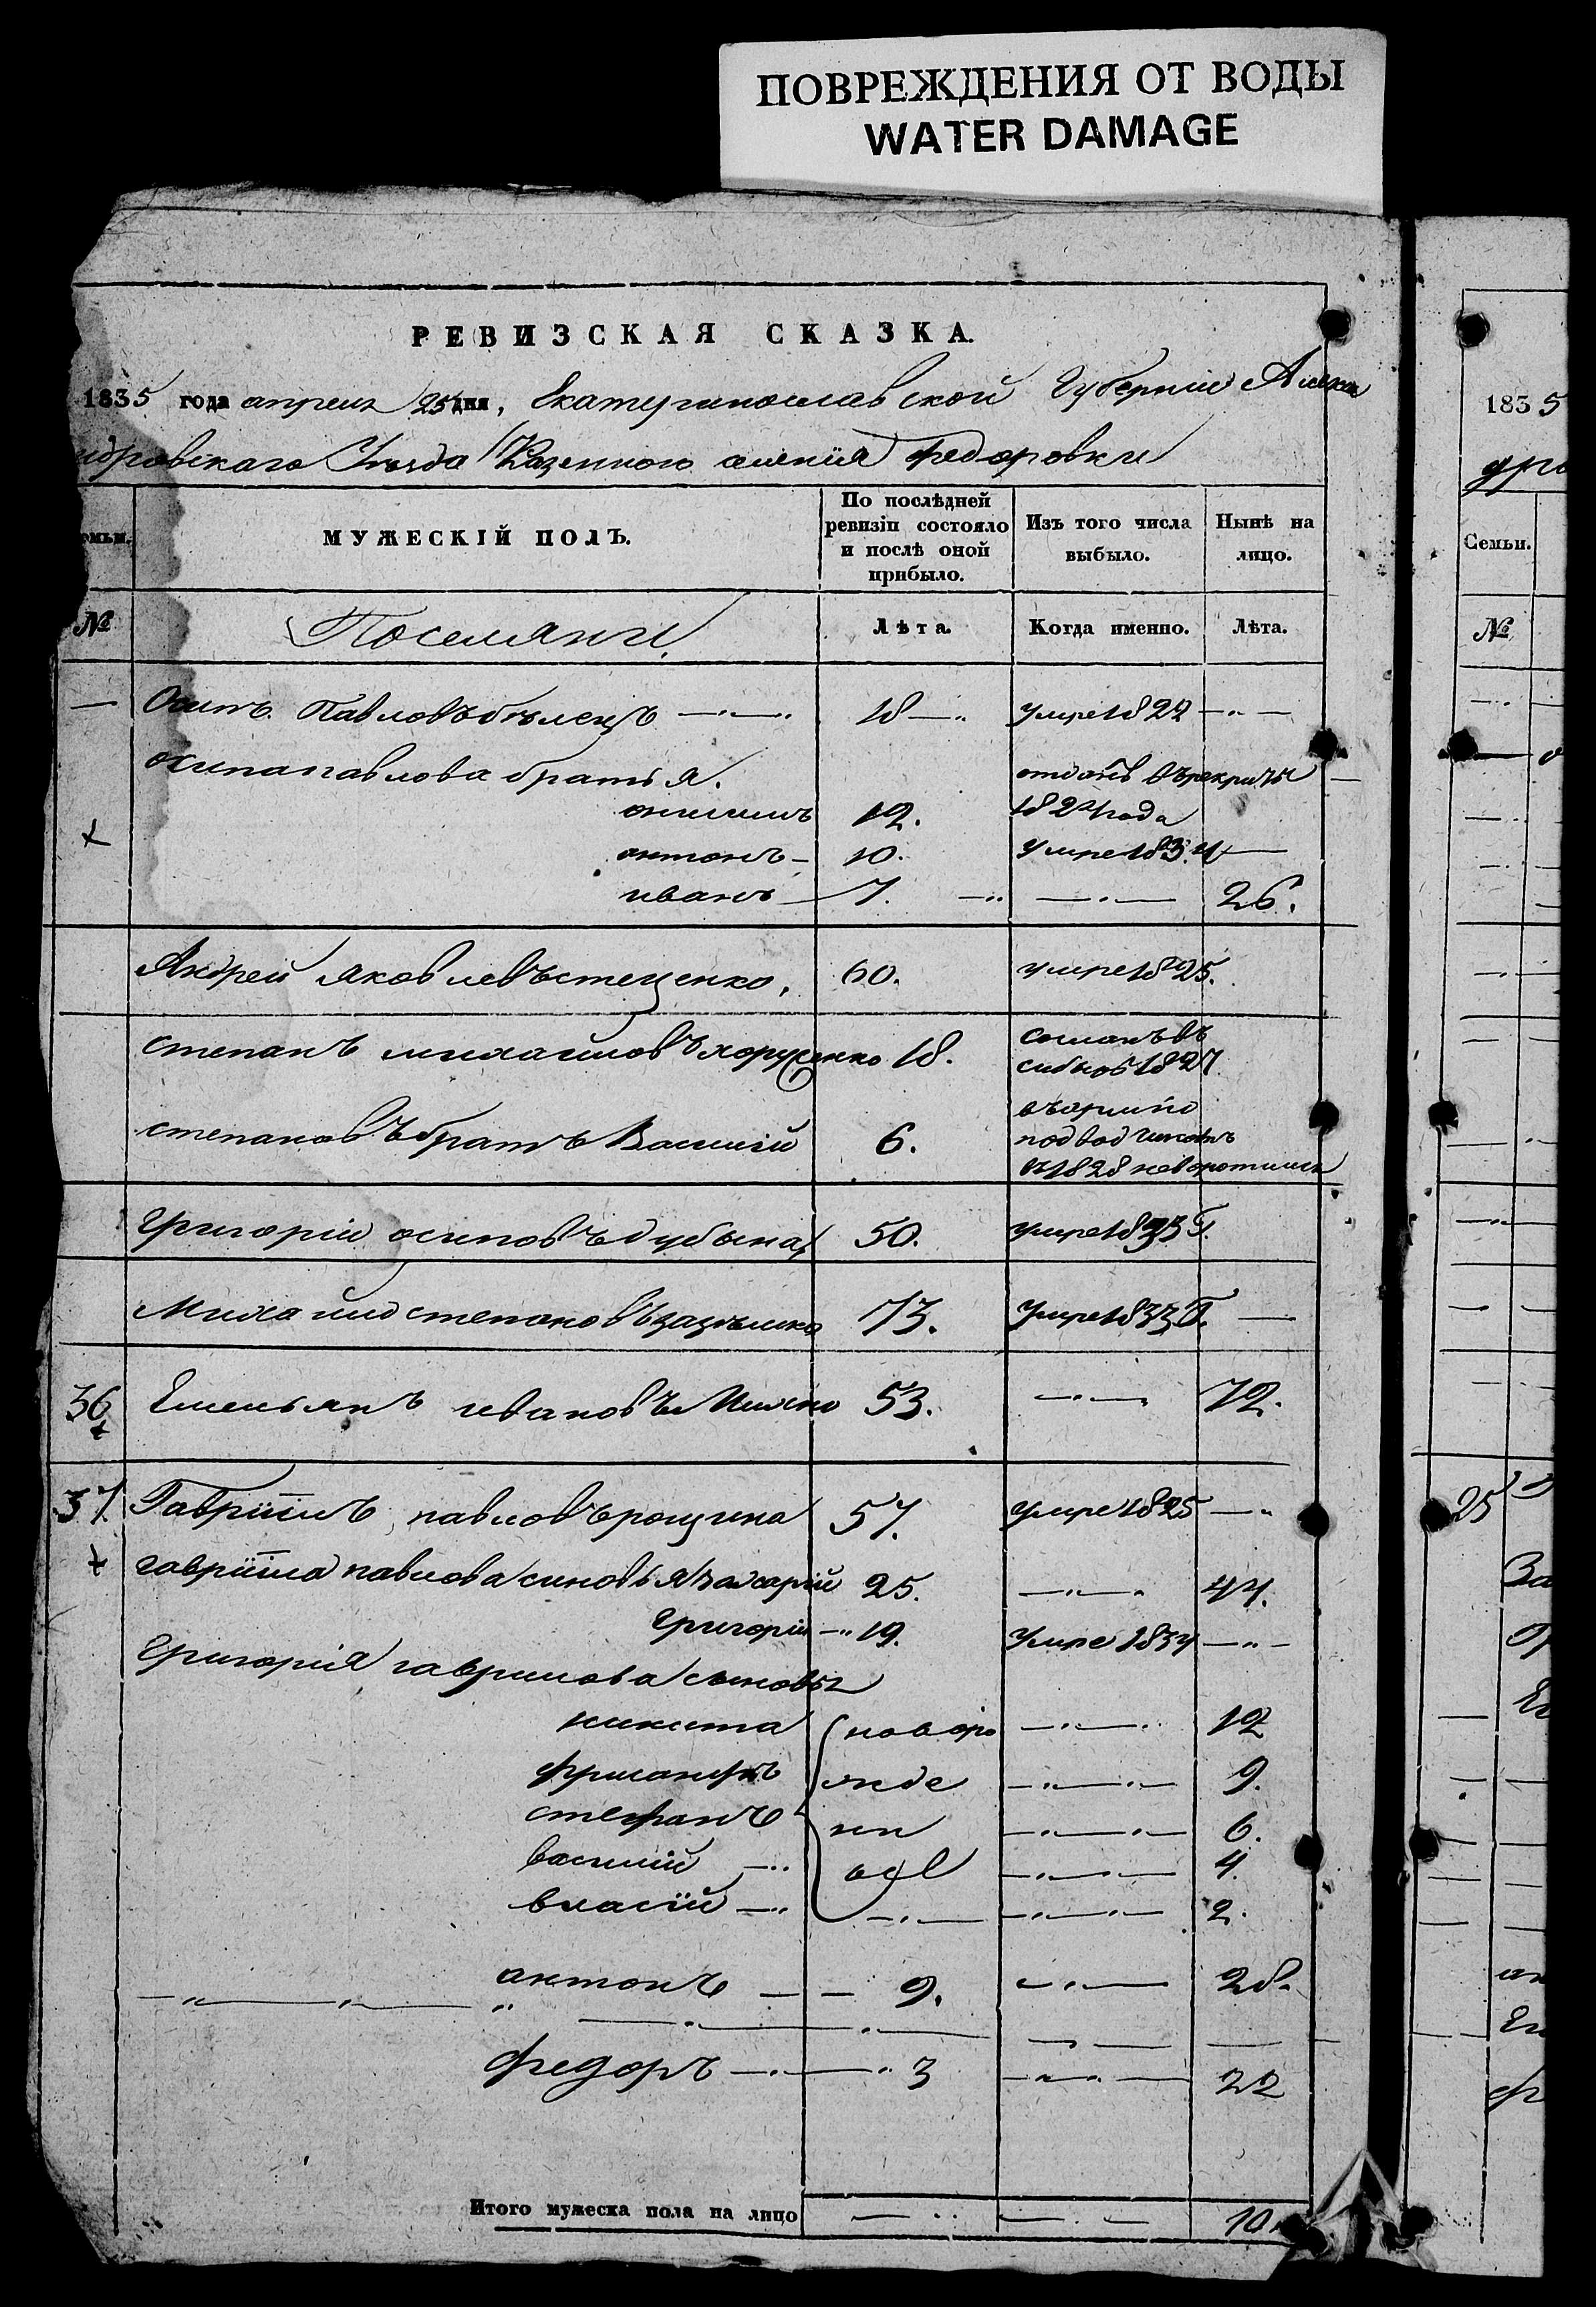 ПОВРЕЖДЕНИЯ ОТ ВОДЫ
WATER DAMAGE
РЕВИЗСКАЯ СКАЗКА.
1835 года апреля 25 дня, Екатеринославской Губернии Алекса
ндровскаго Уезда Казенного селения Федоровки
емьи.
МУЖЕСКІЙ ПОЛЪ.
По послѣдней ревизіи состояло и послѣ оной прибыло.
Изъ того числа выбыло.
Нынѣ на лицо.
№
Поселяни
Лѣта.
Когда именно.
Лѣта.
Осипъ Павловъ 18 умре 1827
осипа павлова братья.
онисимъ 12. отданъ въ рекруты 1824 года
антонъ 10. умре 1834
иванъ 7. 26.
Андрей яковлевъ стеценко, 60. умре 1825.
степанъ михаиловъ 18. сосланъ въ сибирь 1827
степановъ братъ Василий 6. въ армию
под вод
в 1828 не воротился
Григорий осиповъ дубына 50. умре 1833 г.
Михаило степановъ 73. умре 1833 г.
36 Емельянъ ивановъ 53. 72.
37. Гавриилъ павловъ рощина 57. умре 1825
гавриила павлова синовья 25. 44.
Григорий 19. умре 1834
Григория гаврилова сыновья
никита новоро 12
жде 9.
стефанъ нн 6.
василий 4.
власий 2.
антонъ 9. 28.
федоръ 3 22
Итого мужеска пола на лицо 10.
1835
дро
Семьи.
№
25
За
Гр
Ев
ан
Ев
ф